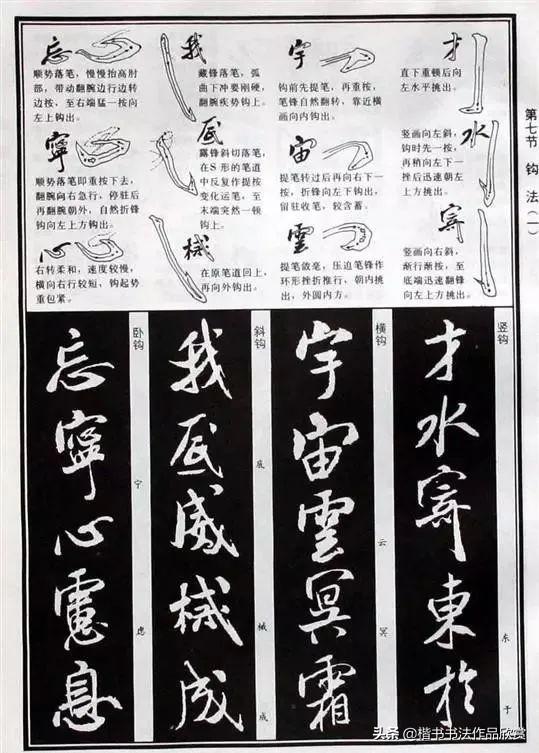 第七节 钩法(一)
才
直下重顿后向
左水平挑出。
水
竖画向左斜,
钩时先一按,
再稍向左下一
挫后迅速朝左
上方挑出。
寄
竖画向右斜,
渐行渐按,至
底端迅速翻锋
向左上方挑出。
宇
钩前先提笔,再重按,
笔锋自然翻转,靠近横
画向内钩出。
宙
提笔转过后再向右下一
按,折锋向左下钩出,
留驻收笔,较含蓄。
雲
提笔敛毫,压迫笔锋作
环形挫折推行,朝内挑
出,外圆内方。
我
藏锋落笔,弧
曲下冲要刚硬,
翻腕疾势钩上。
底
露锋斜切落笔,
在S形的笔道
中反复作提按
变化运笔,至
末端突然一顿
钩上。
械
在原笔道回上,
再向外钩出。
忘
顺势落笔,慢慢抬高肘
部,带动翻腕边行边转
边按,至右端猛一按向
左上钩出。
寧
顺势落笔即重按下去,
翻腕向右急行,停驻后
再翻腕朝外,自然折锋
钩向左上方钩出。
心
右转柔和,速度较慢,
横向右行较短,钩起势
重包紧。
竖钩
才水寄東於
东
于
横钩
宇宙雲冥霜
云
冥
斜钩
我底威械成
底
械
成
卧钩
忘寧心慮息
宁
虑
头条 @楷书书法作品欣赏